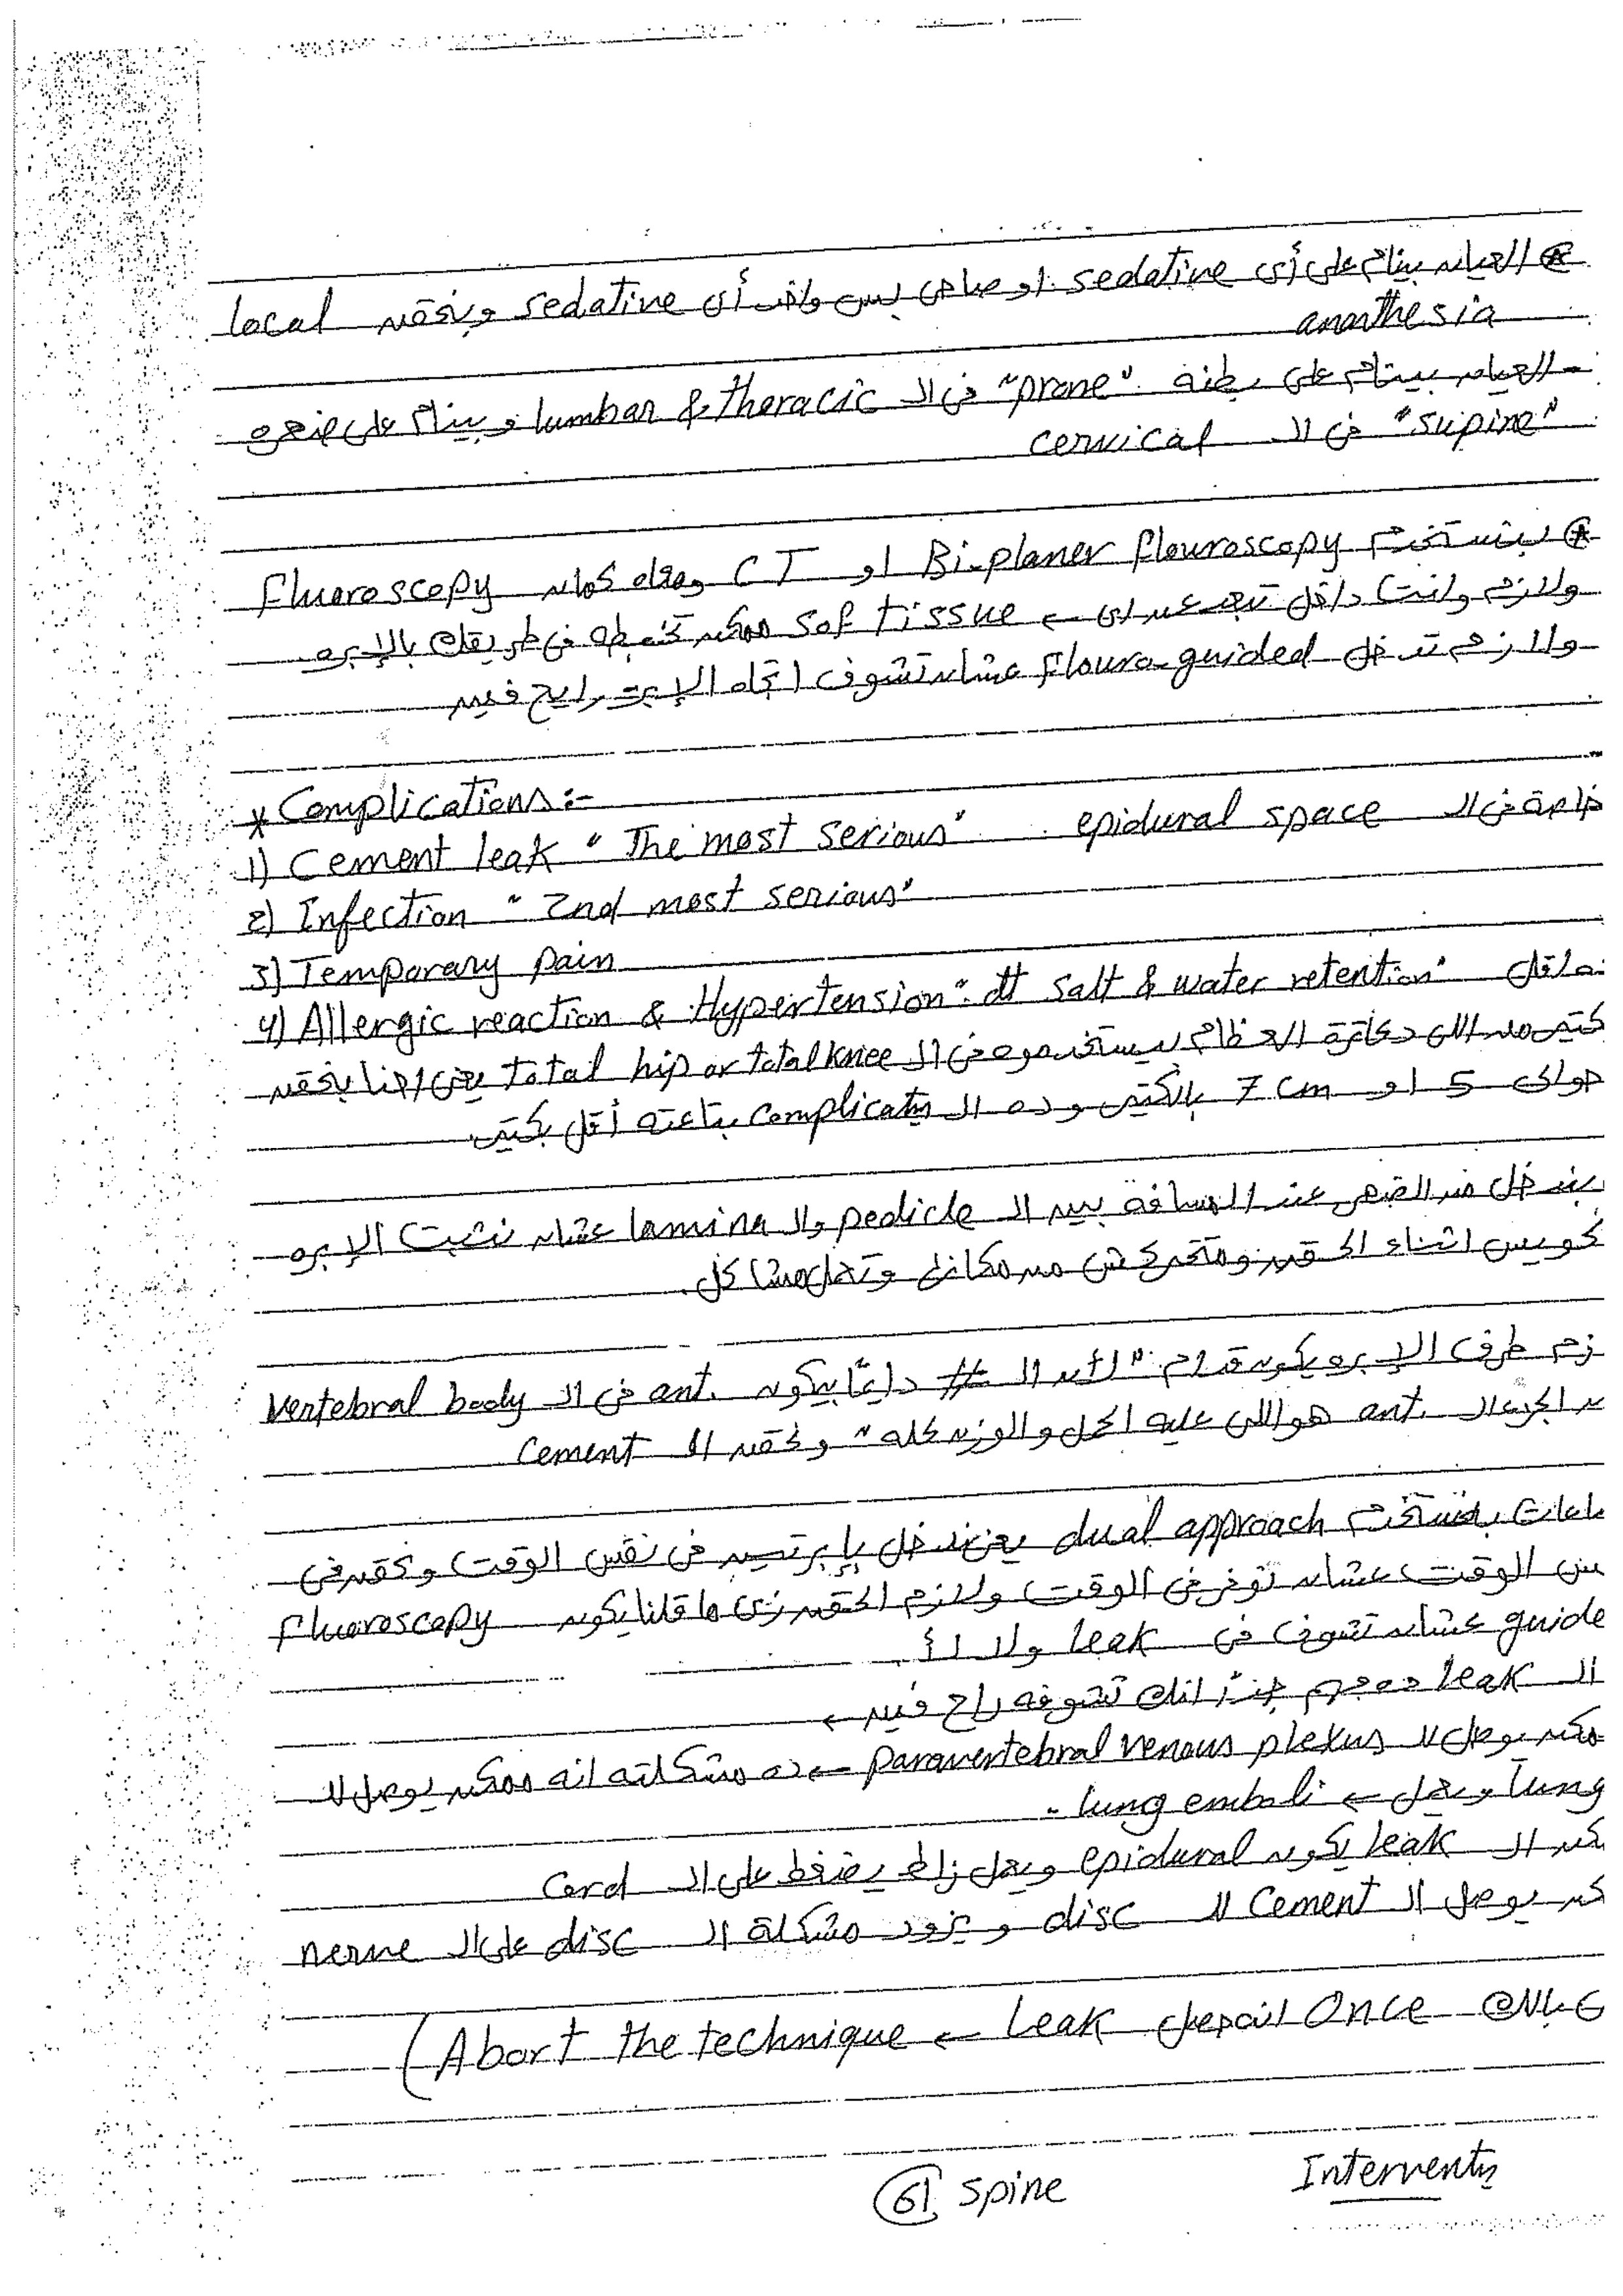 ⊛ العيان بينام على أى sedatine او صاحى بس واخد أى sedatine وبنحقن local
anaethesia
- العيان بيينام على بطنه "prone" فى الـ lumbar & thoracic و بينام على ضهره
"supine" فى الـ cervical
⊛ بنستخدم Bi-planer flouroscopy او CT ومعاه كمان fluoroscopy
ولازم وانت داخل تبعد عن اى ← sof tissue ممكن تخبطه فى طريقك بالإبره
ولازم تدخل floura-guided عشان تشوف اتجاه الإبره رايح فين
* Complications:-
1) Cement leak "The most serious" خاصة فى الـ epidural space
2) Infection "2nd most serious"
3) Temporary pain
4) Allergic reaction & Hypertension "dt salt & water retention"
كتير من اللى دكاترة العظام بيستخدموه فى الـ total hip or total knee يعنى احنا بنحقن
حوالى 5 او 7 cm بالكتير وده الـ complicatn بتاعته أقل بكتير
بندخل من الضهر عند المسافة بين الـ pedicle والـ lamina عشان نثبت الإبره
كويس اثناء الحقن ومتتحركش من مكانها وتعمل مشاكل.
زم طرف الإبره يكون قدام "لأن الـ # دايماً بيكون ant. فى الـ vertebral body
ن الجزء الـ ant. هو اللى عليه الحمل والوزن كله" ونحقن الـ cement
ساعات بنستخدم dual approach يعنى ندخل بإبرتين فى نفس الوقت ونحقن فى
س الوقت عشان نوفر فى الوقت ولازم الحقن زى ما قلنا يكون fluoroscopy
guide عشان تشوف فى leak ولا لأ.
الـ leak ده مهم جداً انك تشوفه راح فين ←
مكن يوصل لـ paravertebral venous plexus ← ده مشكلته انه ممكن يوصل لـ
lung ويعمل ← lung emboli.
كن الـ leak يكون epidural ويعمل يضغط على الـ cord
كن يوصل الـ cement لـ disc و يزود مشكلة الـ disc على الـ nerve
بالك Once انه حصل leak ← Abort the technique)
61 spine
Interventn